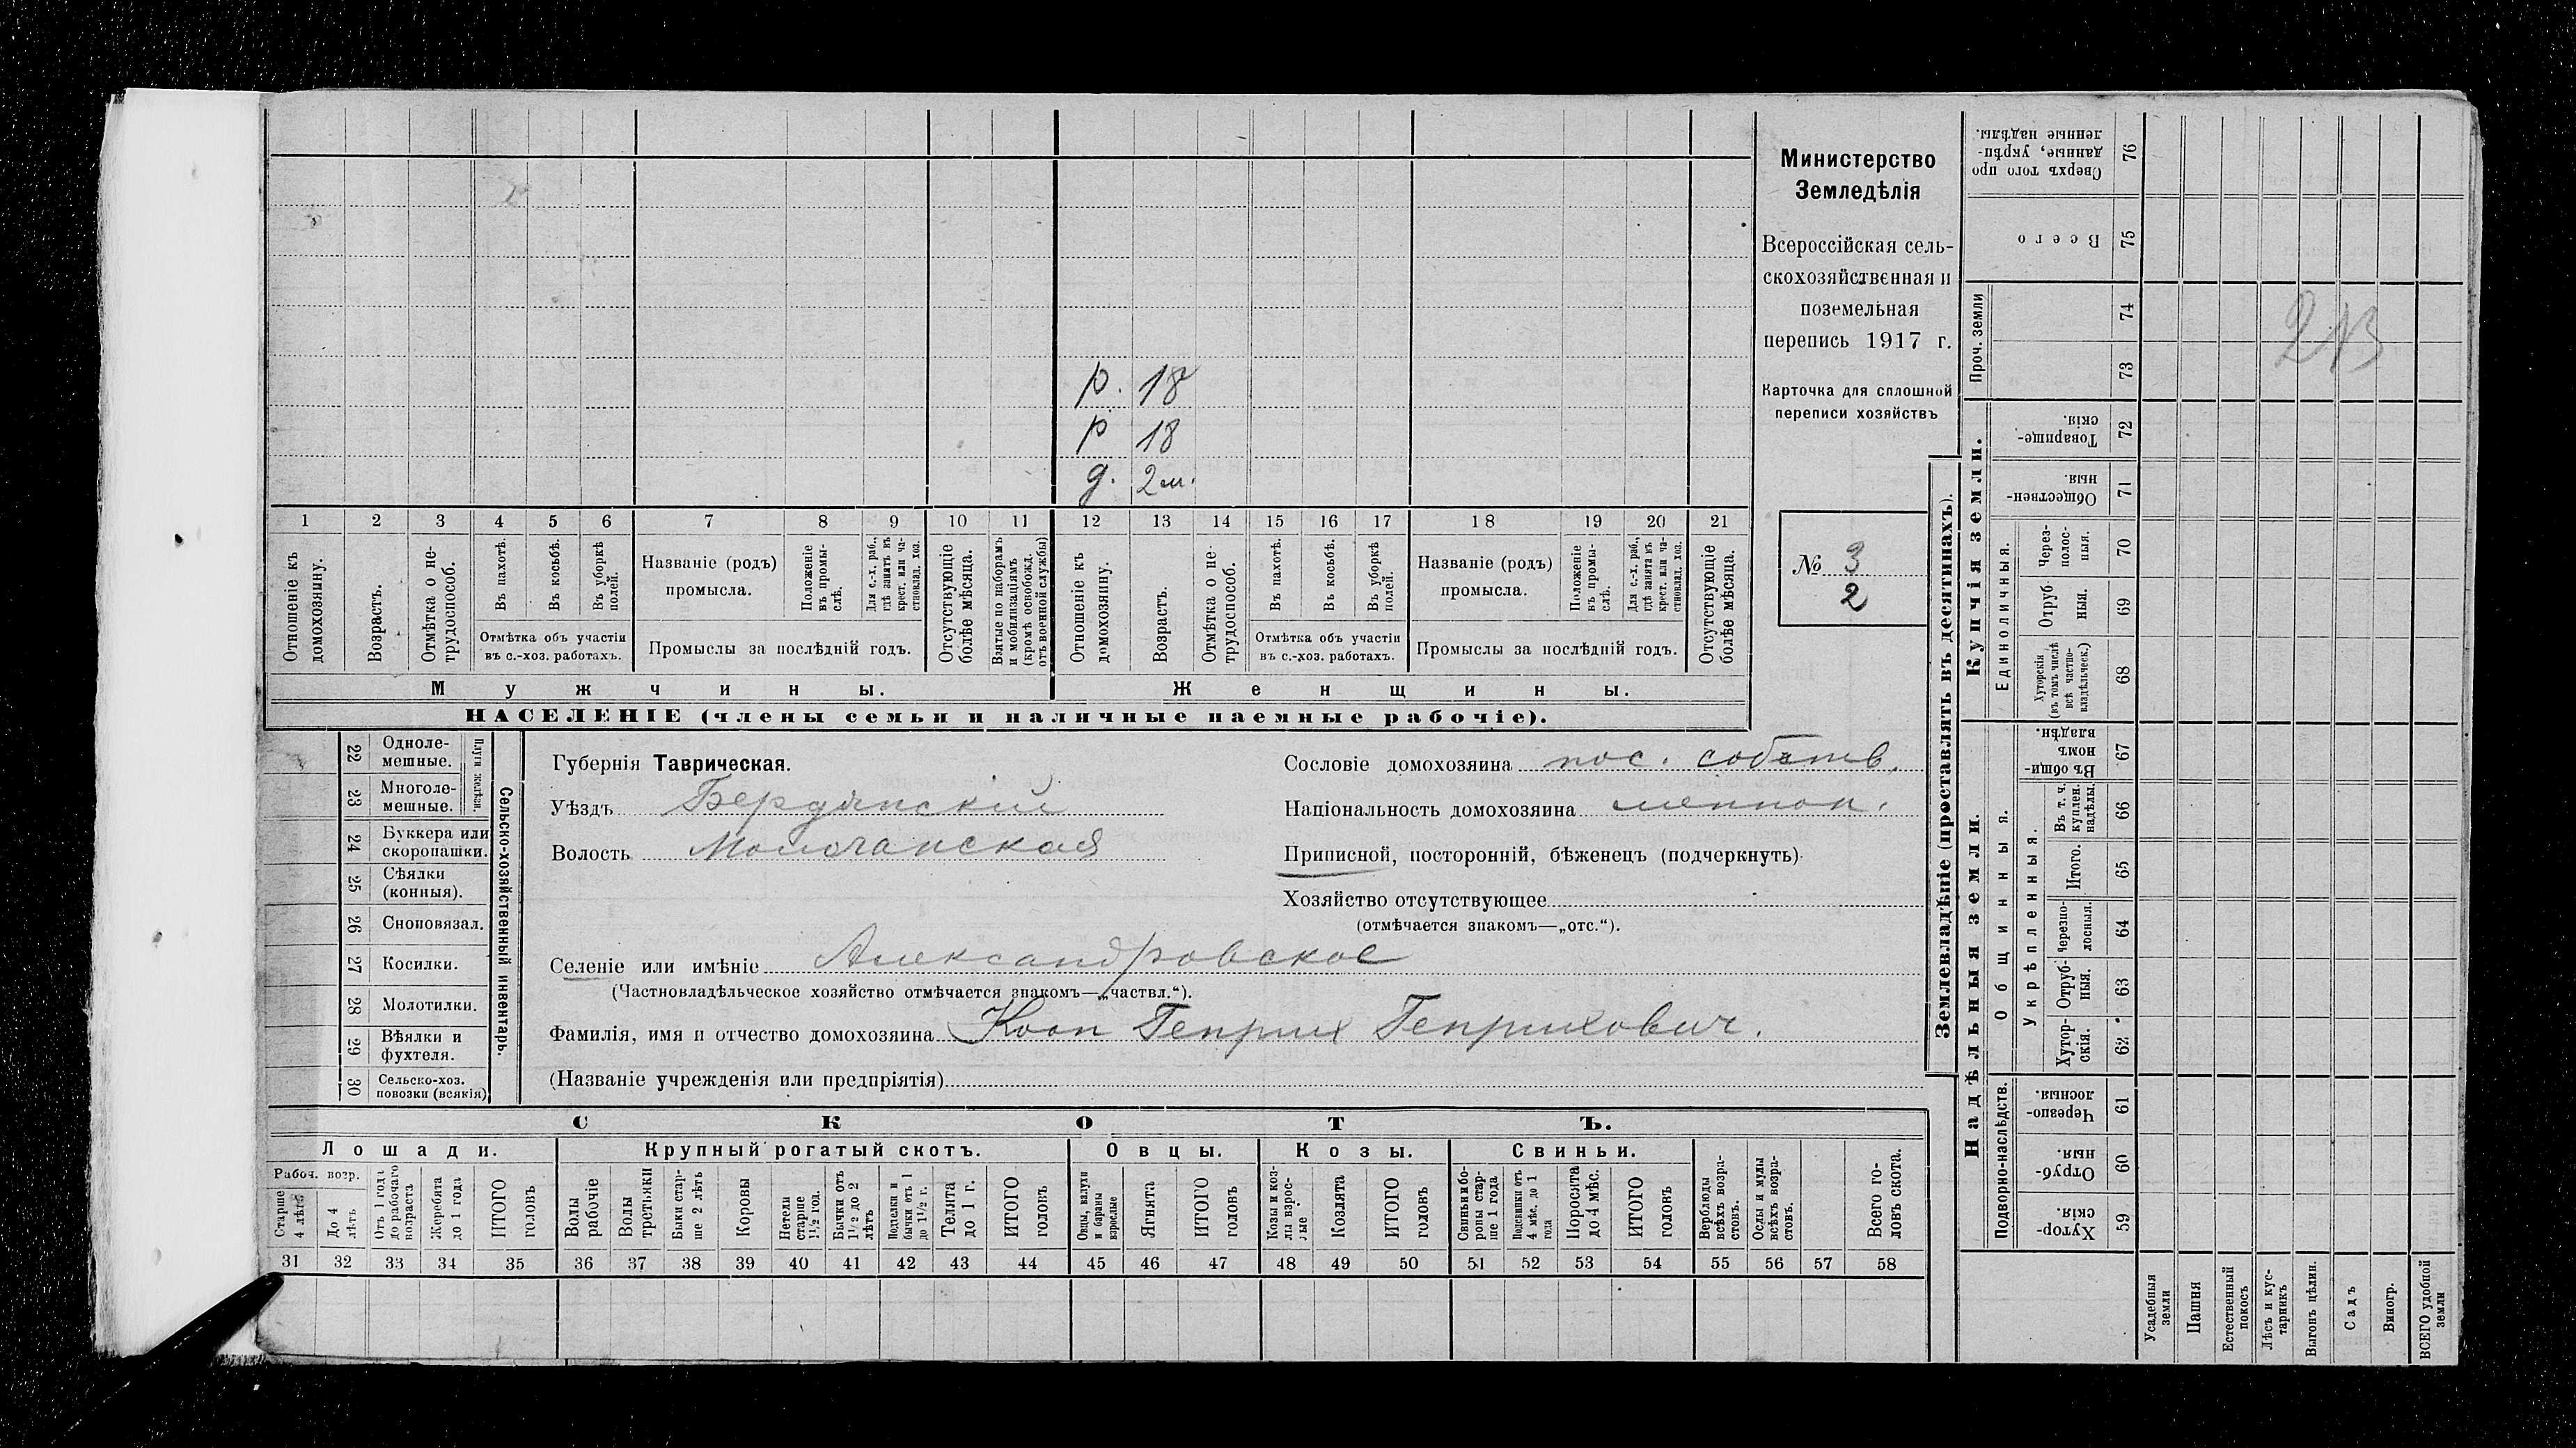 р. 18
р 18
д. 2 м.
1 2 3 4 5 6 7 8 9 10 11 12 13 14 15 16 17 18 19 20 21
Отношеніе къ домохозяину.
Возрастъ.
Отмѣтка о не-трудоспособ.
Въ пахотѣ.
Въ косьбѣ.
Въ уборкѣ полей.
Отмѣтка объ участіи
въ с.-хоз. работахъ.
Названіе (родъ)
промысла.
Положеніе въ промы-слѣ.
Для с.-х. раб., гдѣ занятъ въ крест. или ча-стновлад. хоз.
Промыслы за послѣдній годъ.
Отсутствующіе болѣе мѣсяца.
Взятые по наборамъ и мобилизаціямъ (кромѣ освобожд. отъ военной службы)
Отношеніе къ домохозяину.
Возрастъ.
Отмѣтка о не-трудоспособ.
Въ пахотѣ.
Въ косьбѣ.
Въ уборкѣ полей.
Отмѣтка объ участіи
въ с.-хоз. работахъ.
Названіе (родъ)
промысла.
Положеніе въ промы-слѣ.
Для с.-х. раб., гдѣ занята въ крест. или ча-стновлад. хоз.
Промыслы за послѣдній годъ.
Отсутствующіе болѣе мѣсяца.
Мужчины. Женщины.
НАСЕЛЕНІЕ (члены семьи и наличные наемные рабочіе).
Министерство
Земледѣлія
Всероссійская сель-
скохозяйственная и
поземельная
перепись 1917 г.
Карточка для сплошной
переписи хозяйствъ
№ 3
2
Сельско-хозяйственный инвентарь.
Плуги желѣзн.
22 Одноле-мешные.
23 Многоле-мешные.
24 Буккера или скоропашки.
25 Сѣялки (конныя).
26 Сноповязал.
27 Косилки.
28 Молотилки.
29 Вѣялки и фухтеля.
30 Сельско-хоз. повозки (всякія)
Губернія Таврическая.
Уѣздъ Бердянскій
Волость Молочанская
Сословіе домохозяина пос. собств.
Національность домохозяина меннон.
Приписной, посторонній, бѣженецъ (подчеркнуть)
Хозяйство отсутствующее
(отмѣчается знакомъ—„отс.“).
Селеніе или имѣніе Александровское
(Частновладѣльческое хозяйство отмѣчается знакомъ—„частвл.“).
Фамилія, имя и отчество домохозяина Кооп Генрих Генрихович.
(Названіе учрежденія или предпріятія)
СКОТЪ.
Лошади. Крупный рогатый скотъ. Овцы. Козы. Свиньи.
Рабоч. возр.
Старше 4 лѣтъ
До 4 лѣтъ
Отъ 1 года до рабочаго возраста
Жеребята до 1 года
ИТОГО головъ
Волы рабочіе
Волы третьяки
Быки стар-ше 2 лѣтъ
Коровы
Нетели старше 1½ год.
Бычки отъ 1½ до 2 лѣтъ
Подтелки и бычки отъ 1 до 1½ г.
Телята до 1 г.
ИТОГО головъ
Овцы, валухи и бараны взрослые
Ягнята
ИТОГО головъ
Козы и коз-лы взрос-лые
Козлята
ИТОГО головъ
Свиньи и бо-ровы стар-ше 1 года
Подсвинки отъ 4 мѣс. до 1 года
Поросята до 4 мѣс.
ИТОГО головъ
Верблюды всѣхъ возра-стовъ.
Ослы и мулы всѣхъ возра-стовъ.
Всего го-ловъ скота.
31 32 33 34 35 36 37 38 39 40 41 42 43 44 45 46 47 48 49 50 51 52 53 54 55 56 57 58
Землевладѣніе (проставлять въ десятинахъ).
Надѣльныя земли.
Купчія земли.
Проч. земли
Подворно-наслѣдств.
Общинныя.
Укрѣпленныя.
Единоличныя.
Сверхъ того про-данные, укрѣп-ленные надѣлы. 76
Всего 75
74
73
Товарище-скія. 72
Обществен-ныя. 71
Через-полос-ныя. 70
Отруб-ныя. 69
Хуторскія (въ томъ числѣ всѣ частно-владѣльческ.) 68
Въ общин-номъ владѣн. 67
Въ т. ч. куплен. надѣлы. 66
Итого. 65
Черезпо-лосныя. 64
Отруб-ныя. 63
Хутор-скія. 62
Черезпо-лосныя. 61
Отруб-ныя. 60
Хутор-скія. 59
Усадебныя земли
Пашня
Естественный покосъ
Лѣсъ и кус-тарникъ
Выгонъ цѣлин.
Садъ
Виногр.
ВСЕГО удобной земли